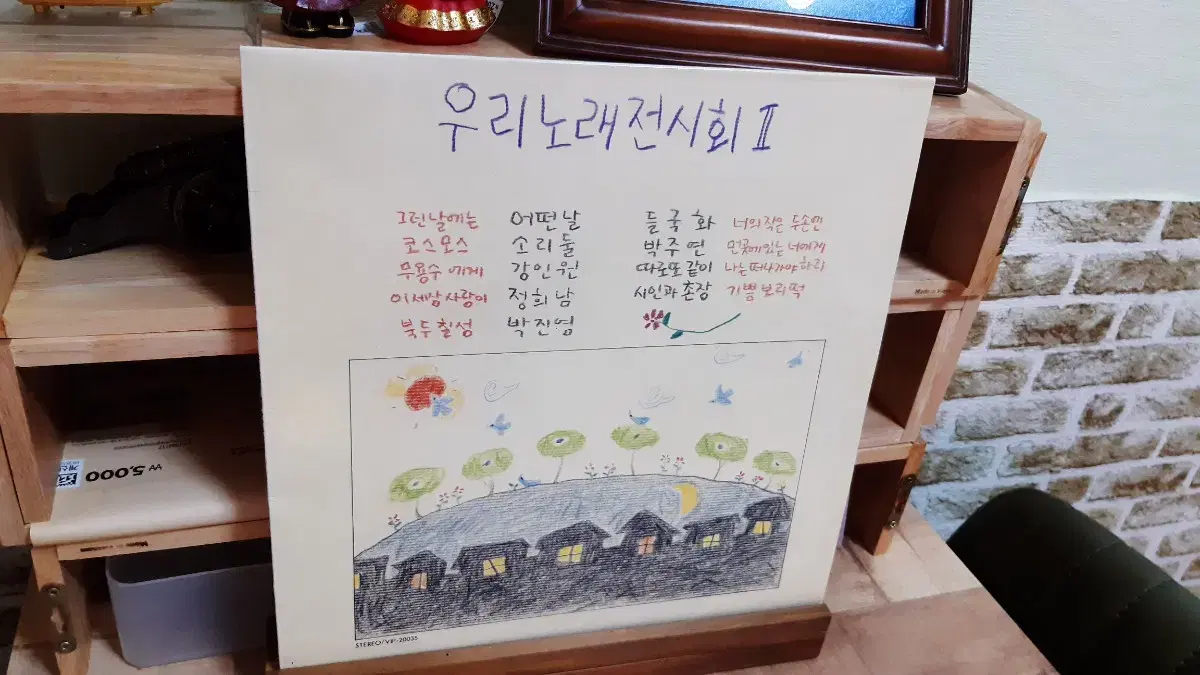 우리노래전시회 II
그런날에는 어떤날
코스모스 소리둘
무용수에게 강인원
이세상사랑이 정희남
북두칠성 박진영
들국화 너의작은두손엔
박주연 먼곳에있는너에게
따로또같이 나는떠나가야하리
시인과촌장 기쁨보리떡
STEREO/VIP-20035
AA 5,000